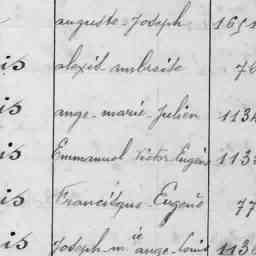 auguste Joseph 1651
is alexis ambroise 76
is ange-marie-Julien 1134
is Emmanuel Victor Eugène 1133
is Francisque-Eugène 77
is Joseph m ie ange Louis 1136